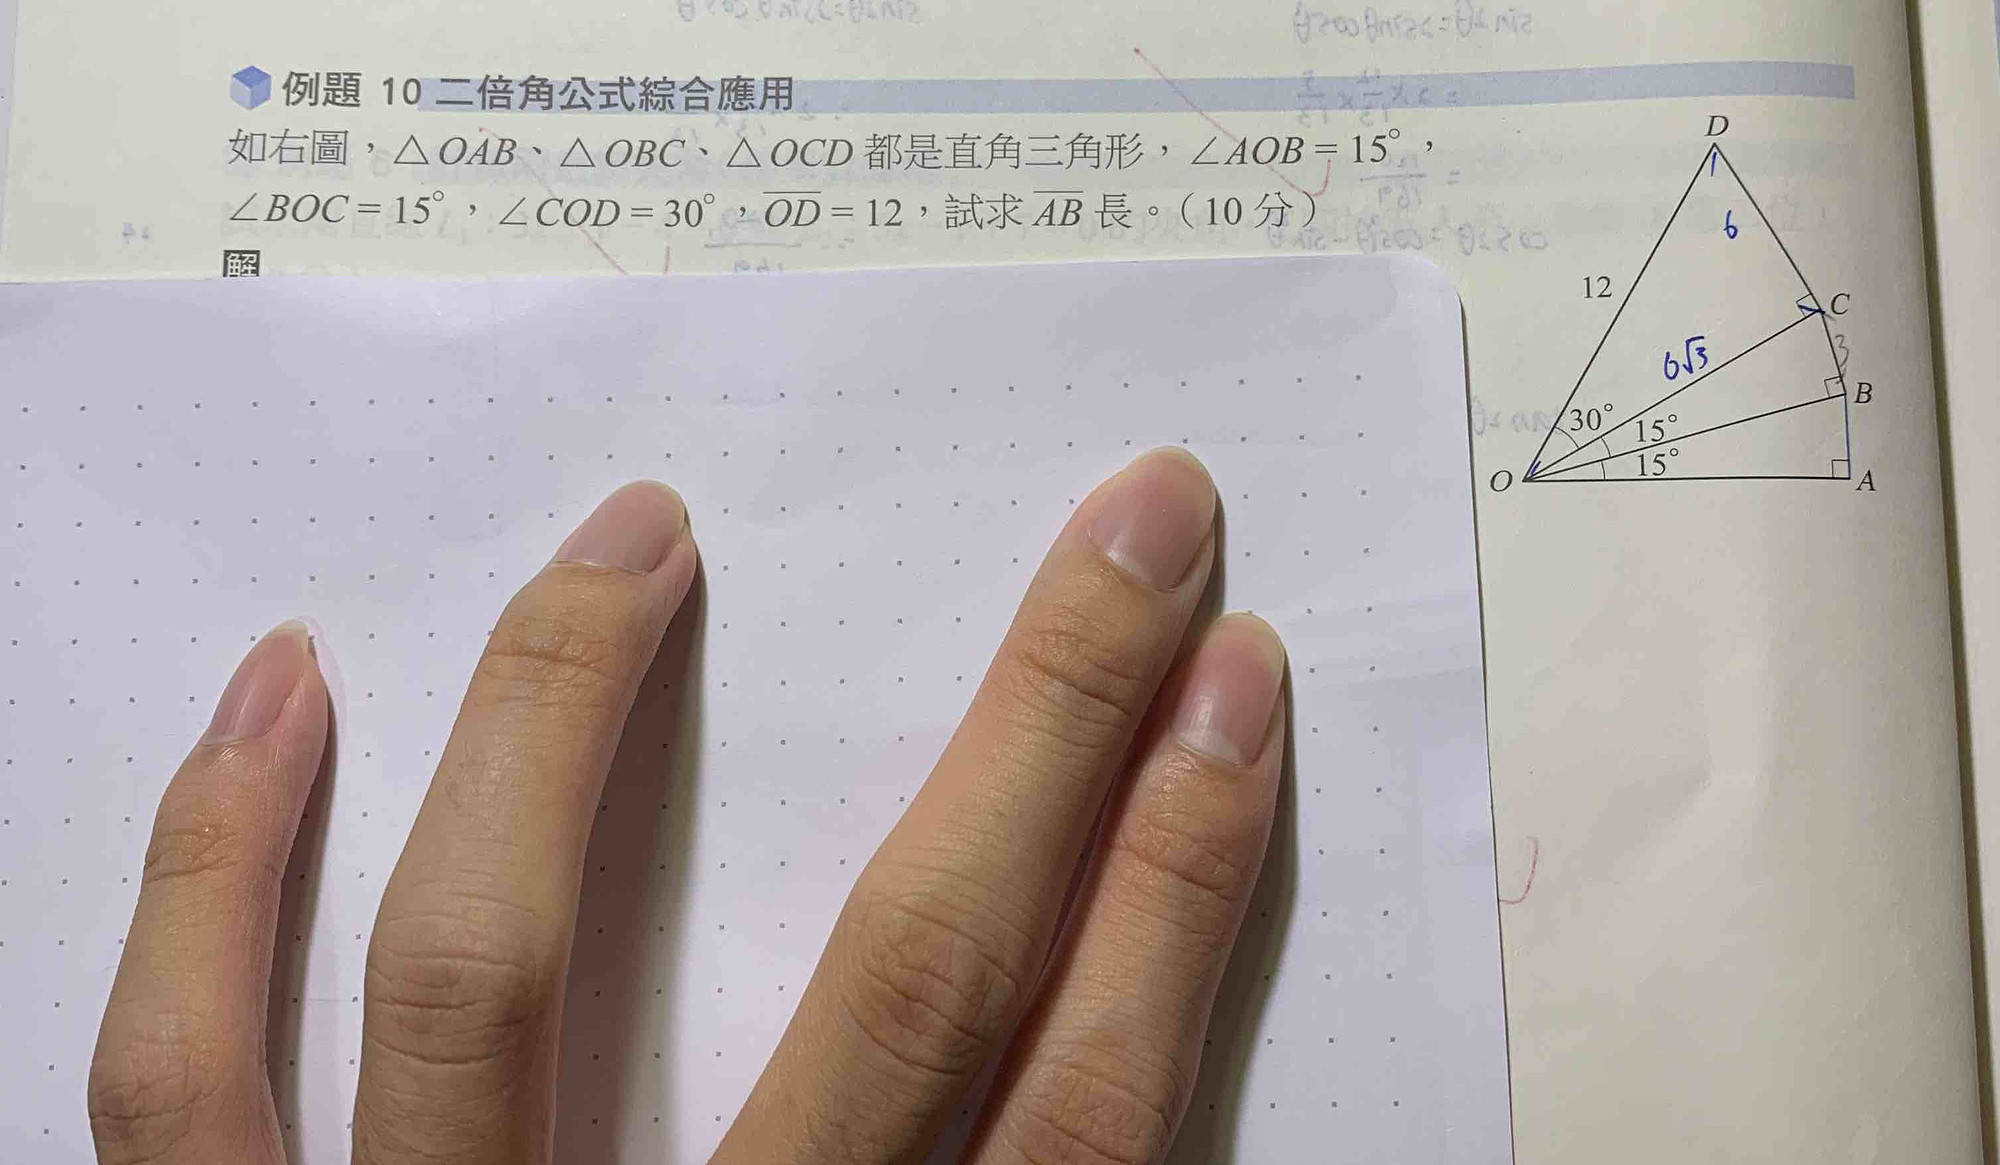 例題 10 二倍角公式綜合應用
如右圖，△OAB、△OBC、△OCD 都是直角三角形，∠AOB = 15°，
∠BOC = 15°，∠COD = 30°，OD = 12，試求 AB 長。（10 分）
解
D
6
12
C
6√3
3
B
30°
15°
15°
O
A